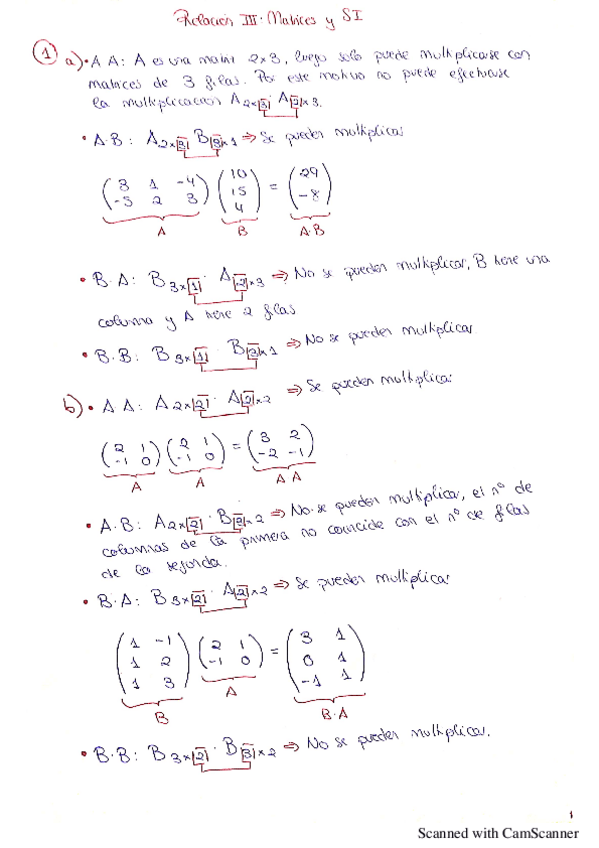 Relación III: Matrices y SI
1 a) • A A: A es una matriz 2x3, luego solo puede multiplicarse con
matrices de 3 filas. Por este motivo no puede efectuarse
la multiplicación A2x3 · A2x3.
• A·B: A2x3 B3x1 ⇒ Se pueden multiplicar
( 3 1 -4 ) ( 10 ) = ( 29 )
( -5 2 3 ) ( 15 ) ( -8 )
( 4 )
A B A·B
• B·A: B3x1 · A2x3 ⇒ No se pueden multiplicar, B tiene una
columna y A tiene 2 filas
• B·B: B3x1 · B3x1 ⇒ No se pueden multiplicar
b) • A A: A2x2 · A2x2 ⇒ Se pueden multiplicar
( 2 1 ) ( 2 1 ) = ( 3 2 )
( -1 0 ) ( -1 0 ) ( -2 -1 )
A A A A
• A·B: A2x2 · B3x2 ⇒ No se pueden multiplicar, el nº de
columnas de la primera no coincide con el nº de filas
de la segunda.
• B·A: B3x2 · A2x2 ⇒ Se pueden multiplicar
( 1 -1 ) ( 2 1 ) = ( 3 1 )
( 1 2 ) ( -1 0 ) ( 0 1 )
( 1 3 ) ( -1 1 )
B A B·A
• B·B: B3x2 · B3x2 ⇒ No se pueden multiplicar.
1
Scanned with CamScanner